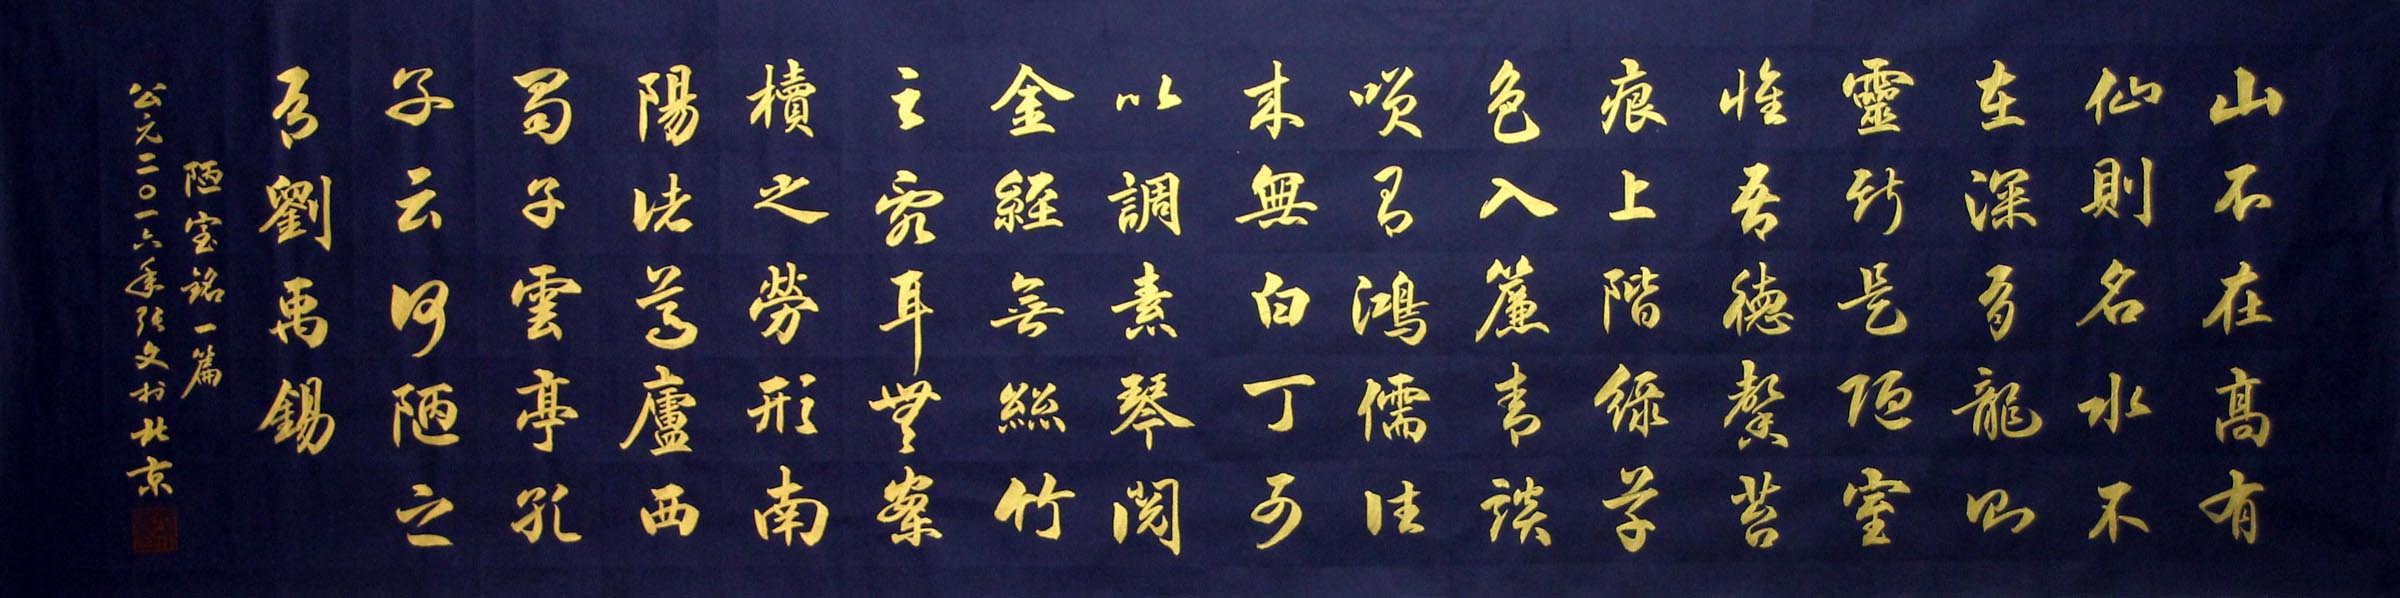 山不在高有
仙則名水不
在深有龍則
靈斯是陋室
惟吾德馨苔
痕上階緑草
色入簾青談
咲有鴻儒往
来無白丁可
以調素琴閲
金經無絲竹
之亂耳無案
牘之勞形南
陽諸葛廬西
蜀子雲亭孔
子云何陋之
有劉禹錫
陋室銘一篇
公元二〇一六年張文於北京